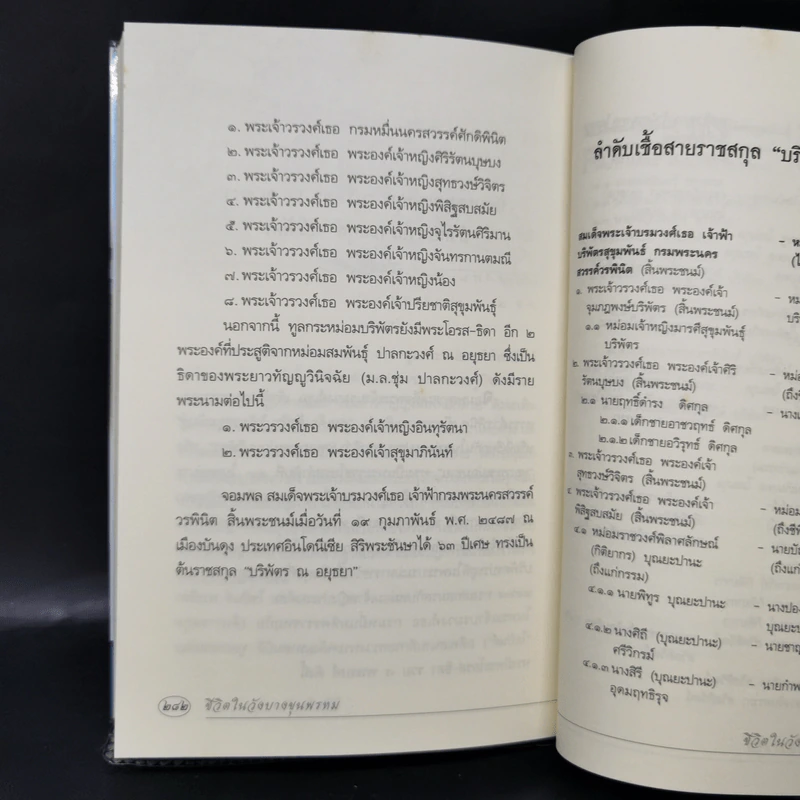 ๑. พระเจ้าวรวงศ์เธอ กรมหมื่นนครสวรรค์ศักดิพินิต
๒. พระเจ้าวรวงศ์เธอ พระองค์เจ้าหญิงศิริรัตนบุษบง
๓. พระเจ้าวรวงศ์เธอ พระองค์เจ้าหญิงสุทธวงษ์วิจิตร
๔. พระเจ้าวรวงศ์เธอ พระองค์เจ้าหญิงพิสิฐสบสมัย
๕. พระเจ้าวรวงศ์เธอ พระองค์เจ้าหญิงจุไรรัตนศิริมาน
๖. พระเจ้าวรวงศ์เธอ พระองค์เจ้าหญิงจันทรกานตมณี
๗. พระเจ้าวรวงศ์เธอ พระองค์เจ้าหญิงน้อง
๘. พระเจ้าวรวงศ์เธอ พระองค์เจ้าปรียชาติสุขุมพันธุ์
นอกจากนี้ ทูลกระหม่อมบริพัตรยังมีพระโอรส-ธิดา อีก ๒
พระองค์ที่ประสูติจากหม่อมสมพันธุ์ ปาลกะวงศ์ ณ อยุธยา ซึ่งเป็น
ธิดาของพระยาวทัญญูวินิจฉัย (ม.ล.ชุ่ม ปาลกะวงศ์) ดังมีราย
พระนามต่อไปนี้
๑. พระวรวงศ์เธอ พระองค์เจ้าหญิงอินทุรัตนา
๒. พระวรวงศ์เธอ พระองค์เจ้าสุขุมาภินันท์
จอมพล สมเด็จพระเจ้าบรมวงศ์เธอ เจ้าฟ้ากรมพระนครสวรรค์
วรพินิต สิ้นพระชนม์เมื่อวันที่ ๑๙ กุมภาพันธ์ พ.ศ. ๒๔๘๗ ณ
เมืองบันดุง ประเทศอินโดนีเซีย สิริพระชันษาได้ ๖๓ ปีเศษ ทรงเป็น
ต้นราชสกุล "บริพัตร ณ อยุธยา"
๒๘๒ ชีวิตในวังบางขุนพรหม
ลำดับเชื้อสายราชสกุล "บริ
สมเด็จพระเจ้าบรมวงศ์เธอ เจ้าฟ้า
บริพัตรสุขุมพันธ์ กรมพระนคร
สวรรค์วรพินิต (สิ้นพระชนม์)
๑. พระเจ้าวรวงศ์เธอ พระองค์เจ้า
จุมภฏพงษ์บริพัตร (สิ้นพระชนม์)
๑.๑ หม่อมเจ้าหญิงมารศีสุขุมพันธุ์
บริพัตร
๒. พระเจ้าวรวงศ์เธอ พระองค์เจ้าศิริ
รัตนบุษบง (สิ้นพระชนม์)
๒.๑ นายฤทธิ์ดำรง ดิศกุล
๒.๑.๑ เด็กชายอาชวฤทธ์ ดิศกุล
๒.๑.๒ เด็กชายอวิรุทธ์ ดิศกุล
๓. พระเจ้าวรวงศ์เธอ พระองค์เจ้า
สุทธวงษ์วิจิตร (สิ้นพระชนม์)
๔. พระเจ้าวรวงศ์เธอ พระองค์เจ้า
พิสิฐสบสมัย (สิ้นพระชนม์)
๔.๑ หม่อมราชวงศ์พิลาศลักษณ์
(กิติยากร) บุณยะปานะ
(ถึงแก่กรรม)
๔.๑.๑ นายพิทูร บุณยะปานะ
๔.๑.๒ นางศิถี (บุณยะปานะ)
ศรีวิกรม์
๔.๑.๓ นางสิรี (บุณยะปานะ)
อุดมฤทธิรุจ
ชีวิตในวัง